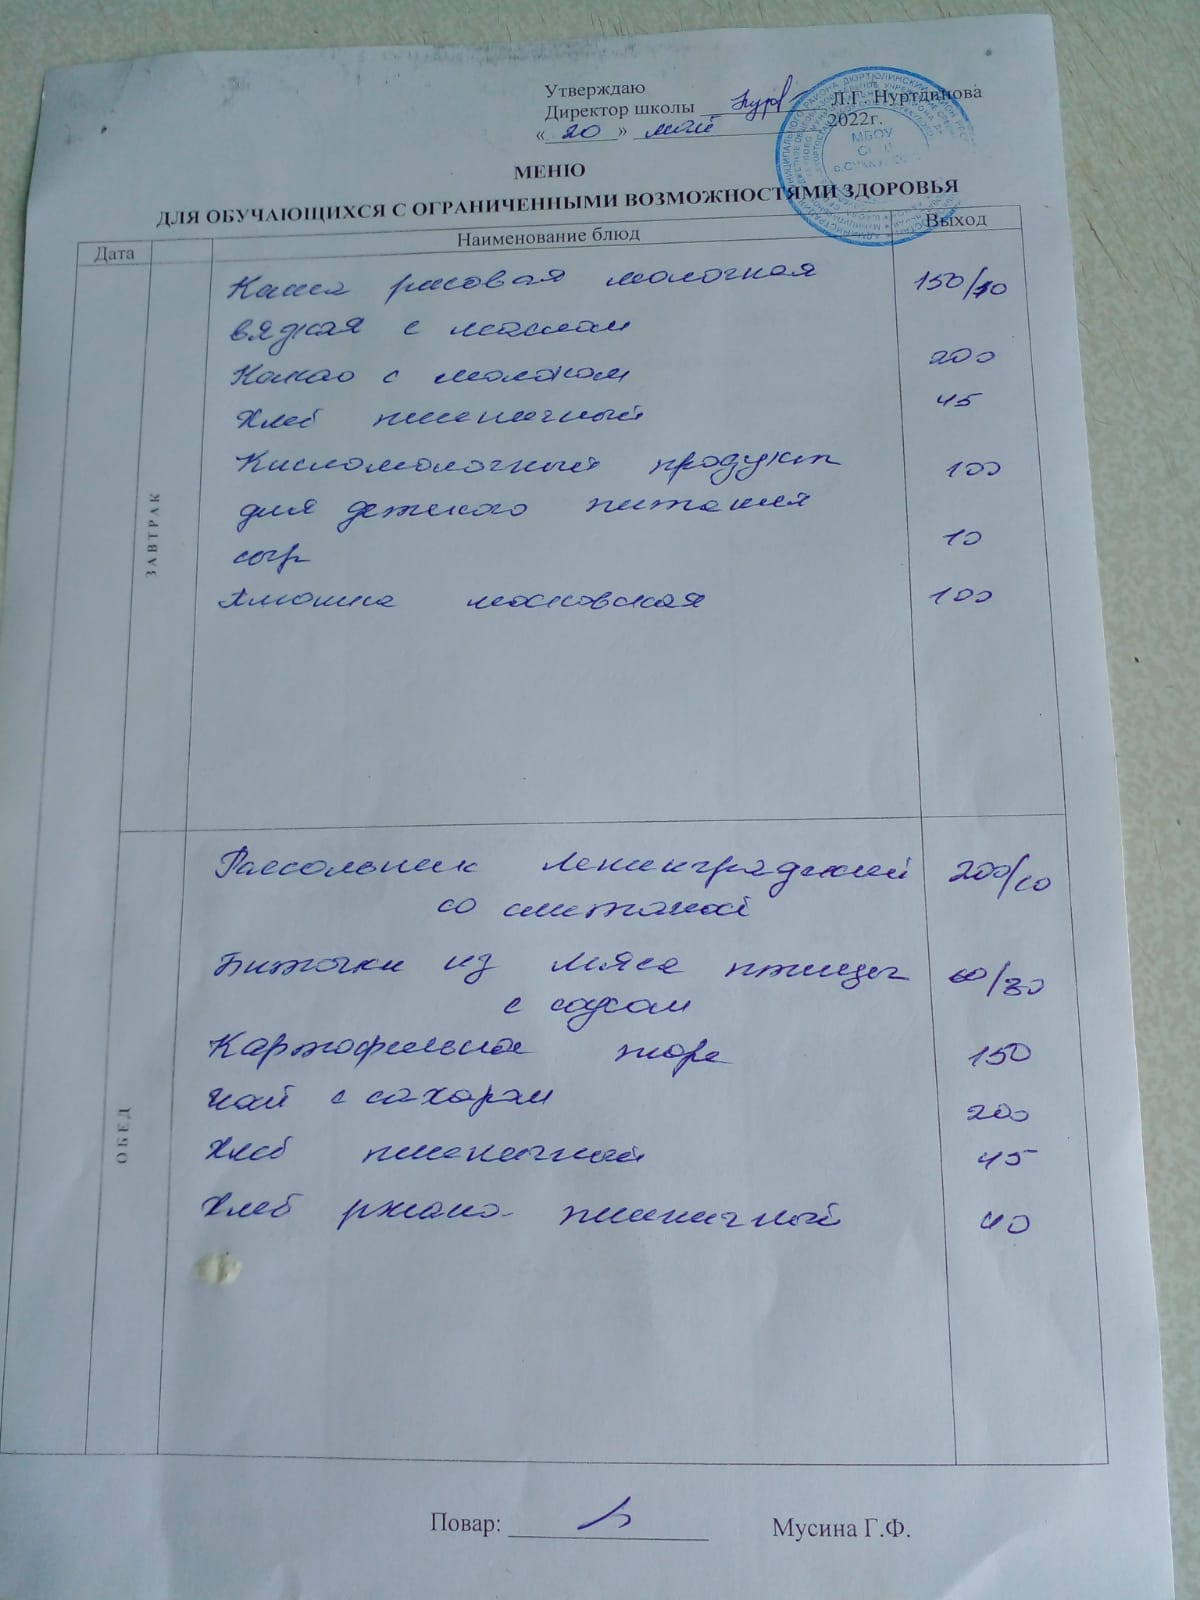 Утверждаю
Директор школы Л.Г. Нуртдинова
« 20 » май 2022г.
МБОУ
МЕНЮ
ДЛЯ ОБУЧАЮЩИХСЯ С ОГРАНИЧЕННЫМИ ВОЗМОЖНОСТЯМИ ЗДОРОВЬЯ
Дата Наименование блюд Выход
ЗАВТРАК
Каша рисовая молочная 150/10
вязкая с маслом
Какао с молоком 200
Хлеб пшеничный 45
Кисломолочный продукт 100
для детского питания
сыр 10
Плюшка московская 100
ОБЕД
Рассольник Ленинградский 200/10
со сметаной
Биточки из мяса птицы 60/30
с соусом
Картофельное пюре 150
Чай с сахаром 200
Хлеб пшеничный 45
Хлеб ржано- пшеничный 40
Повар: Мусина Г.Ф.